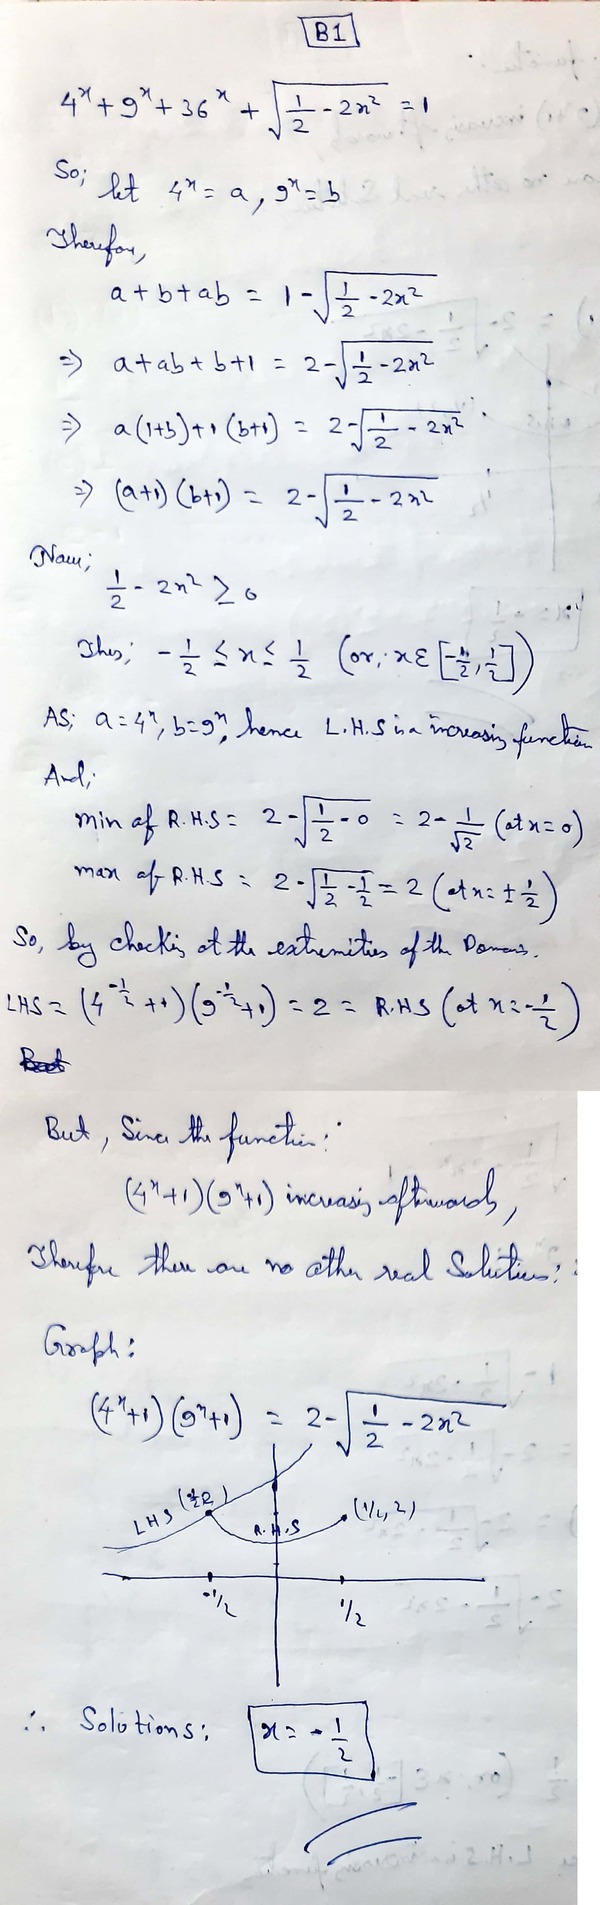 B1
4^x + 9^x + 36^x + √(1/2 - 2x²) = 1
So; let 4^x = a, 9^x = b
Therefore,
a + b + ab = 1 - √(1/2 - 2x²)
⇒ a + ab + b + 1 = 2 - √(1/2 - 2x²)
⇒ a(1+b) + 1(b+1) = 2 - √(1/2 - 2x²)
⇒ (a+1)(b+1) = 2 - √(1/2 - 2x²)
Now;
1/2 - 2x² ≥ 0
Thus; -1/2 ≤ x ≤ 1/2 (or, x ∈ [-1/2, 1/2])
AS; a = 4^x, b = 9^x, hence L.H.S is a increasing function
And;
min of R.H.S = 2 - √(1/2 - 0) = 2 - 1/√2 (at x = 0)
max of R.H.S = 2 - √(1/2 - 1/2) = 2 (at x = ± 1/2)
So, by checking at the extremities of the Domain.
LHS = (4^(-1/2) + 1)(9^(-1/2) + 1) = 2 = R.H.S (at x = -1/2)
But, Since the function:
(4^x + 1)(9^x + 1) increasing afterwards,
Therefore there are no other real Solutions:
Graph:
(4^x + 1)(9^x + 1) = 2 - √(1/2 - 2x²)
LHS
R.H.S
(1/2, 2)
-1/2
1/2
∴ Solutions: x = -1/2